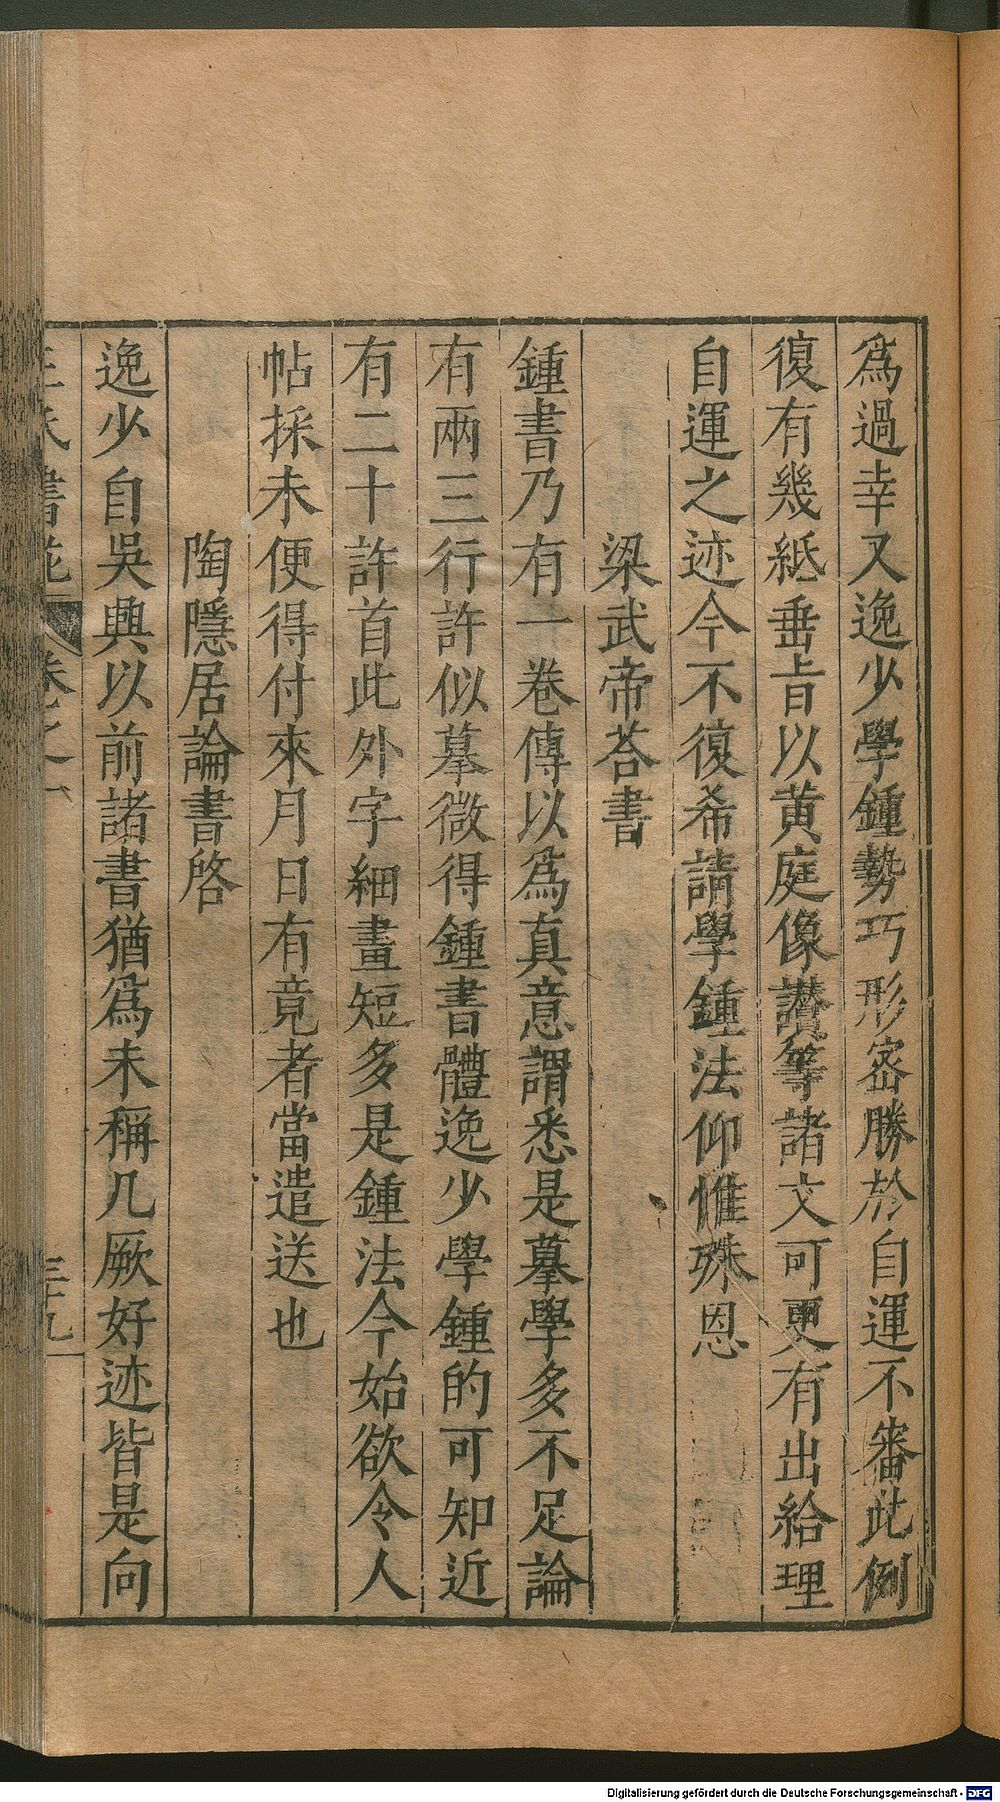 為過幸又逸少學鍾勢巧形密勝於自運不審此例
復有幾紙垂旨以黄庭像讃等諸文可更有出給理
自運之迹今不復希請學鍾法仰惟殊恩
梁武帝荅書
鍾書乃有一卷傳以為真意謂悉是摹學多不足論
有兩三行許似摹微得鍾書體逸少學鍾的可知近
有二十許首此外字細畫短多是鍾法今始欲令人
帖採未便得付來月日有竟者當遣送也
陶隱居論書啓
逸少自吳興以前諸書猶為未稱凡厥好迹皆是向
王氏書苑 卷之 三十九
Digitalisierung gefördert durch die Deutsche Forschungsgemeinschaft - DFG